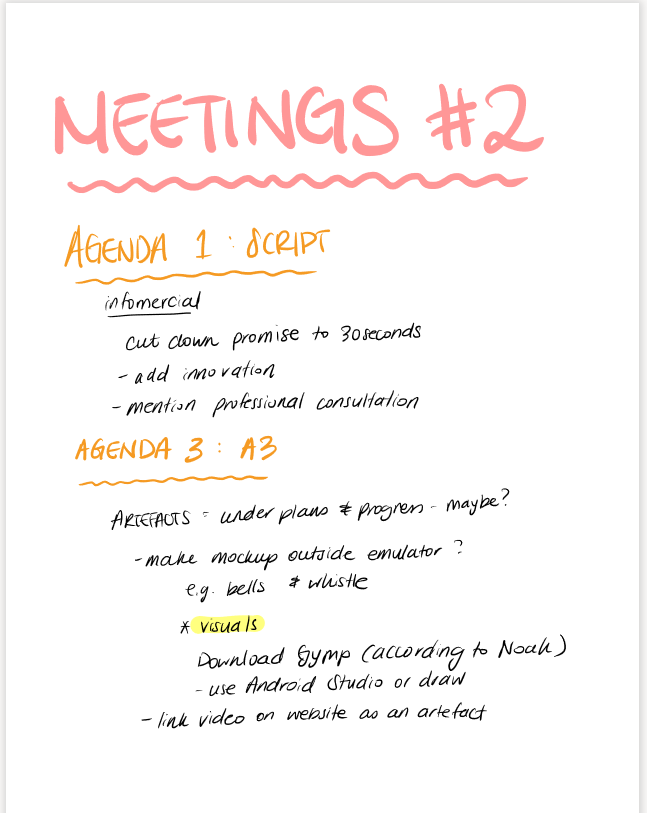 MEETINGS #2
AGENDA 1 : SCRIPT
infomercial
cut down promise to 30 seconds
- add innovation
- mention professional consultation
AGENDA 3 : A3
ARTEFACTS - under plans & progress - maybe?
- make mockup outside emulator ?
e.g. bells & whistle
* visuals
Download Gymp (according to Noah)
- use Android Studio or draw
- link video on website as an artefact